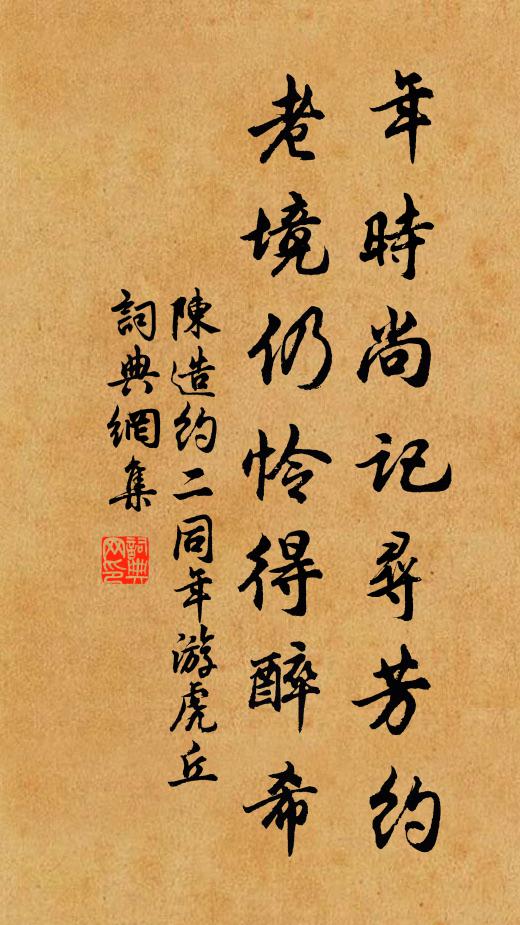 年時尚記尋芳約
老境仍怜得醉希
陳造約二同年游虎丘
詞典網集
詞典网印